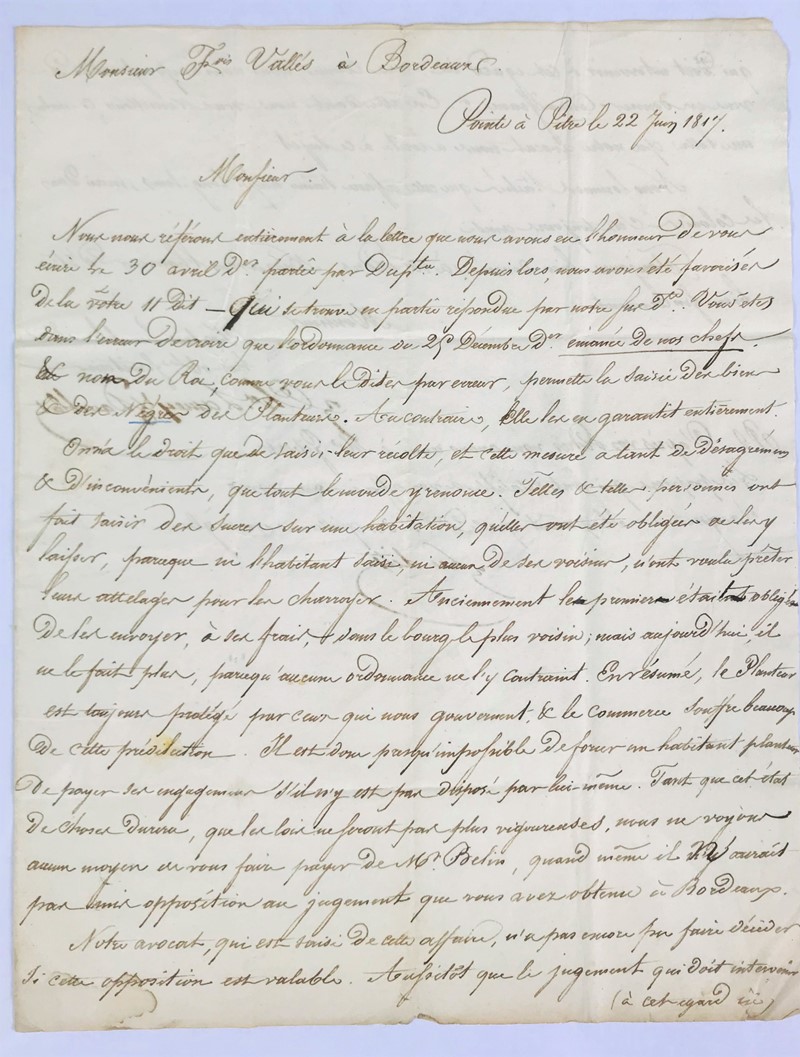 Monsieur Fois Vallés à Bordeaux.
Pointe à Pitre le 22 Juin 1817.
Monsieur.
Nous nous référons entièrement à la lettre que nous avons eu l'honneur De vous
écrire le 30 avril Der partie par Dupta. Depuis lors, nous avons été favorisés
De la vôtre 11 Dit – qui se trouve en partie répondue par notre sus Dte. Vous êtes
dans l'erreur De croire que l'ordonnance du 25 Décembre Der émanée de nos chefs
& non Du Roi, comme vous le dites par erreur, permette la saisie des biens
& des Nègres des Planteurs. Au contraire, Elle les en garantit entièrement.
On n'a le droit que de saisir leur récolte, et cette mesure a tant de Désagrémens
& D'inconvénients, que tout le monde y renonce. Telles & telles personnes ont
fait saisir des sucres sur une habitation, qu'elles ont été obligées de les y
laisser, parceque ni l'habitant saisi, ni aucun De ses voisins, n'ont voulu prêter
leurs attelages pour les charroyer. Anciennement le premier était obligé
De les envoyer, à ses frais, dans le bourg le plus voisin; mais aujourd'hui, il
ne le fait plus, parcequ'aucune ordonnance ne l'y contraint. En résumé, le Planteur
est toujours protégé par ceux qui nous gouvernent, & le commerce souffre beaucoup
De cette prédilection. Il est donc presqu'impossible De forcer un habitant planteur
De payer ses engagemens s'il n'y est pas disposé par lui-même. Tant que cet état
De choses Durera, que les lois ne seront pas plus vigoureuses, nous ne voyons
aucun moyen de vous faire payer De Mr. Belin, quand même il n'y aurait
pas mis opposition au jugement que vous avez obtenu à Bordeaux.
Notre avocat, qui est saisi De cette affaire, n'a pas encore pu faire décider
Si cette opposition est valable. Aussitôt que le jugement qui Doit intervenir
(à cet egard